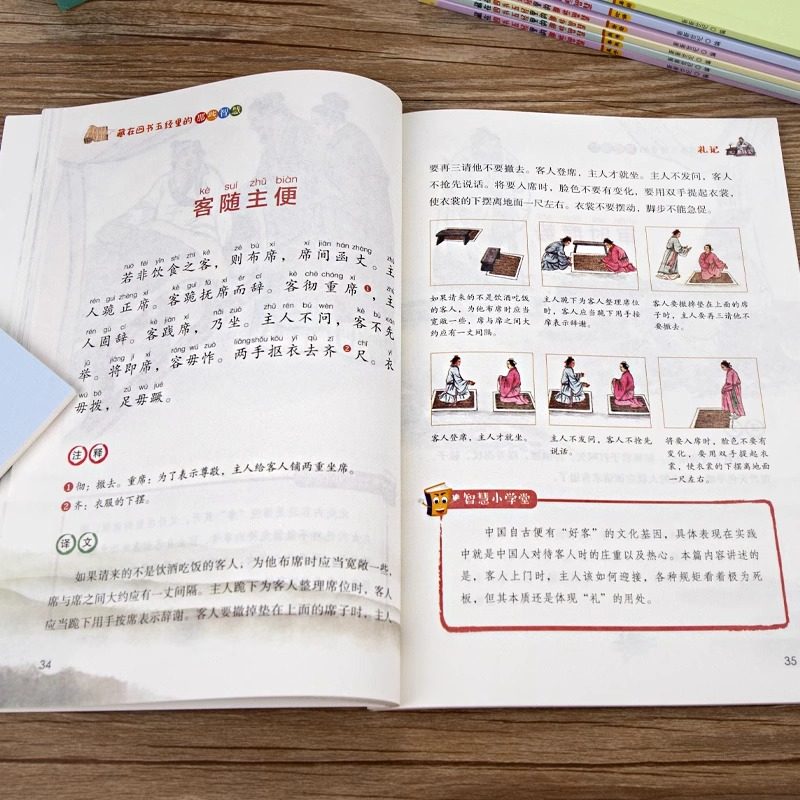 藏在四书五经里的那些智慧
kè suí zhǔ biàn
客随主便
ruò fēi yǐn shí zhī kè zé bù xí xí jiān hán zhàng
若非饮食之客，则布席，席间函丈。主
rén guì zhèng xí kè guì fǔ xí ér cí kè chè chóng xí zhǔ
人跪正席。客跪抚席而辞。客彻重席❶，主
rén gù cí kè jiàn xí nǎi zuò zhǔ rén bú wèn kè bù xiān
人固辞。客践席，乃坐。主人不问，客不先
jǔ jiāng jí xí róng wú zuò liǎng shǒu kōu yī qù zī chǐ yī
举。将即席，容毋怍。两手抠衣去齐❷尺。衣
wú bō zú wú jué
毋拨，足毋蹶。
注释
❶ 彻：撤去。重席：为了表示尊敬，主人给客人铺两重坐席。
❷ 齐：衣服的下摆。
译文
如果请来的不是饮酒吃饭的客人，为他布席时应当宽敞一些，
席与席之间大约应有一丈间隔。主人跪下为客人整理席位时，客人
应当跪下用手按席表示辞谢。客人要撤掉垫在上面的席子时，主人
34
礼记
要再三请他不要撤去。客人登席，主人才就坐。主人不发问，客人
不抢先说话。将要入席时，脸色不要有变化，要用双手提起衣裳，
使衣裳的下摆离地面一尺左右。衣裳不要摆动，脚步不能急促。
如果请来的不是饮酒吃饭
的客人，为他布席时应当
宽敞一些，席与席之间大
约应有一丈间隔。
主人跪下为客人整理席位
时，客人应当跪下用手按
席表示辞谢。
客人要撤掉垫在上面的席
子时，主人要再三请他不
要撤去。
客人登席，主人才就坐。
主人不发问，客人不抢先
说话。
将要入席时，脸色不要有
变化，要用双手提起衣
裳，使衣裳的下摆离地面
一尺左右。
智慧小学堂
中国自古便有“好客”的文化基因，具体表现在实践
中就是中国人对待客人时的庄重以及热心。本篇内容讲述的
是，客人上门时，主人该如何迎接，各种规矩看着极为死
板，但其本质还是体现“礼”的用处。
35